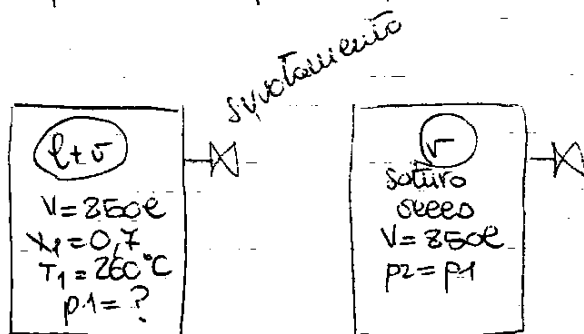 svuotamento
l+v
V=850l
x1=0,7
T1=260°C
p1=?
v
saturo
secco
V=850l
p2=p1